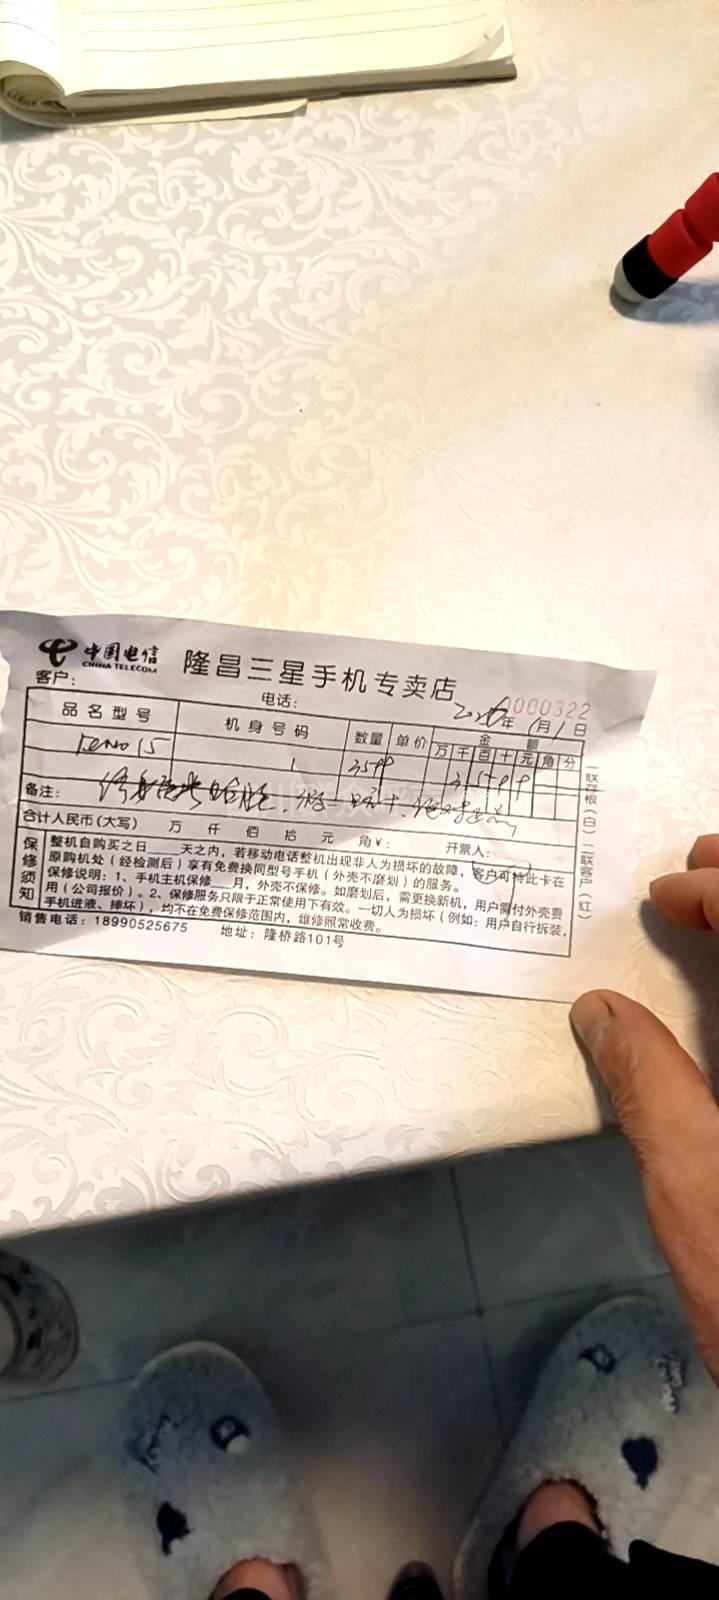 中国电信
CHINA TELECOM
隆昌三星手机专卖店
0000322
客户：
电话：
2026年1月1日
品名型号 机身号码 数量 单价 金额
万千百十元角分
Reno 15 1 3599 3599
备注：
合计人民币（大写） 万 仟 佰 拾 元 角¥： 开票人：
保修须知
整机自购买之日____天之内，若移动电话整机出现非人为损坏的故障，客户可持此卡在
原购机处（经检测后）享有免费换同型号手机（外壳不磨划）的服务。
保修说明：1、手机主机保修____月，外壳不保修。如磨划后，需更换新机，用户需付外壳费
用（公司报价）。2、保修服务只限于正常使用下有效。一切人为损坏（例如：用户自行拆装，
手机进液、摔坏），均不在免费保修范围内，维修照常收费。
销售电话：18990525675 地址：隆桥路101号
一联存根（白） 二联客户（红）